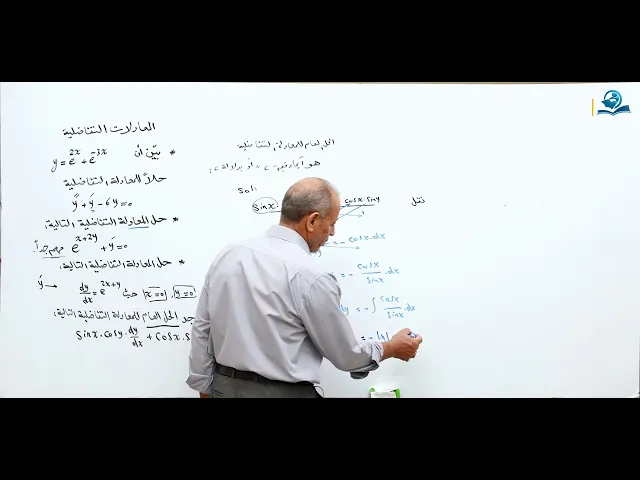 المعادلات التفاضلية
* بيّن أن y = e^2x + e^-3x
حلاً للمعادلة التفاضلية
y̋ + ý - 6y = 0
* حل المعادلة التفاضلية التالية:
e^x+2y + ý = 0 مهم جداً
* حل المعادلة التفاضلية التالية:
ý → dy/dx = e^2x+y حيث x=0, y=0
جد الحل العام للمعادلة التفاضلية التالية:
Sinx . Cosy . dy/dx + Cosx .
الحل العام للمعادلة التفاضلية
هو
Sol:
Sinx . Cosx . Siny
ننقل
= - Cosx . dx
= - Cosx/Sinx . dx
dy = - ∫ Cosx/Sinx . dx
= - ln|